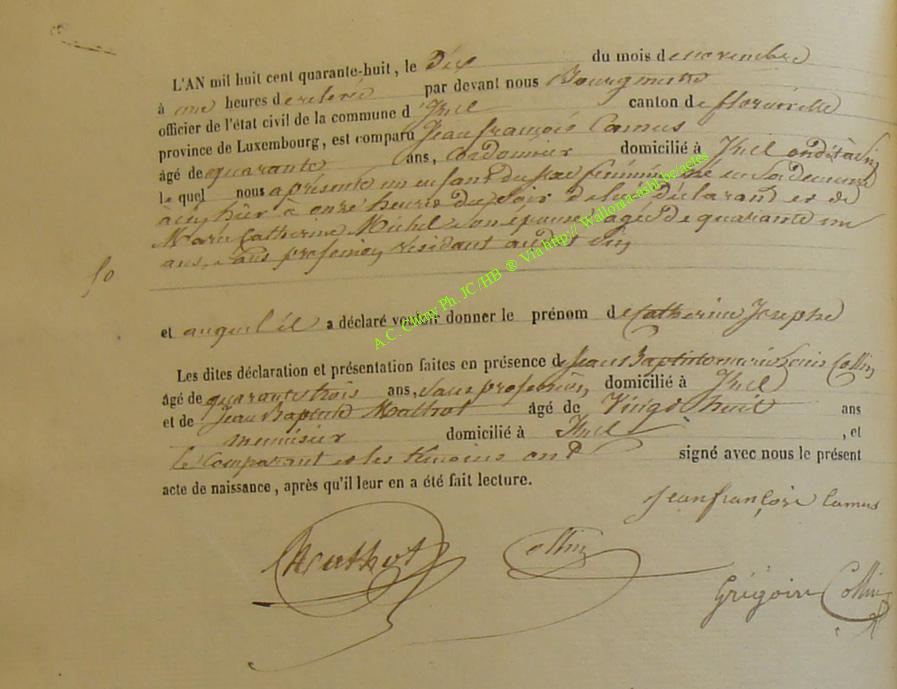 L'AN mil huit cent quarante-huit, le Dix du mois de novembre
à une heures de relevé par devant nous Bourgmestre
officier de l'état civil de la commune d'Izel canton de florenville
province de Luxembourg, est comparu Jean françois Camus
âgé de quarante ans, Cordonnier domicilié à Izel
le quel nous a présenté un enfant du sexe féminin, né en sa demeure
hier à onze heures du soir de lui déclarant et de
Marie Catherine Michel son épouse, agée de quarante un
ans, sans profession, résidant audit
et auquel il a déclaré vouloir donner le prénom de Catherine Josephe
Les dites déclaration et présentation faites en présence de Jean Baptiste Louis Collin
âgé de quarante trois ans, sans profession, domicilié à Izel
et de Jean Baptiste Mathot âgé de Vingt huit ans
menuisier domicilié à Izel, et
le Comparant et les témoins ont signé avec nous le présent
acte de naissance, après qu'il leur en a été fait lecture.
Jean françois Camus
Mathot Collin
Grégoire Collin
A.C. Chiny Ph. JC/HB ® Via http://wallonia-asbl.be/actes